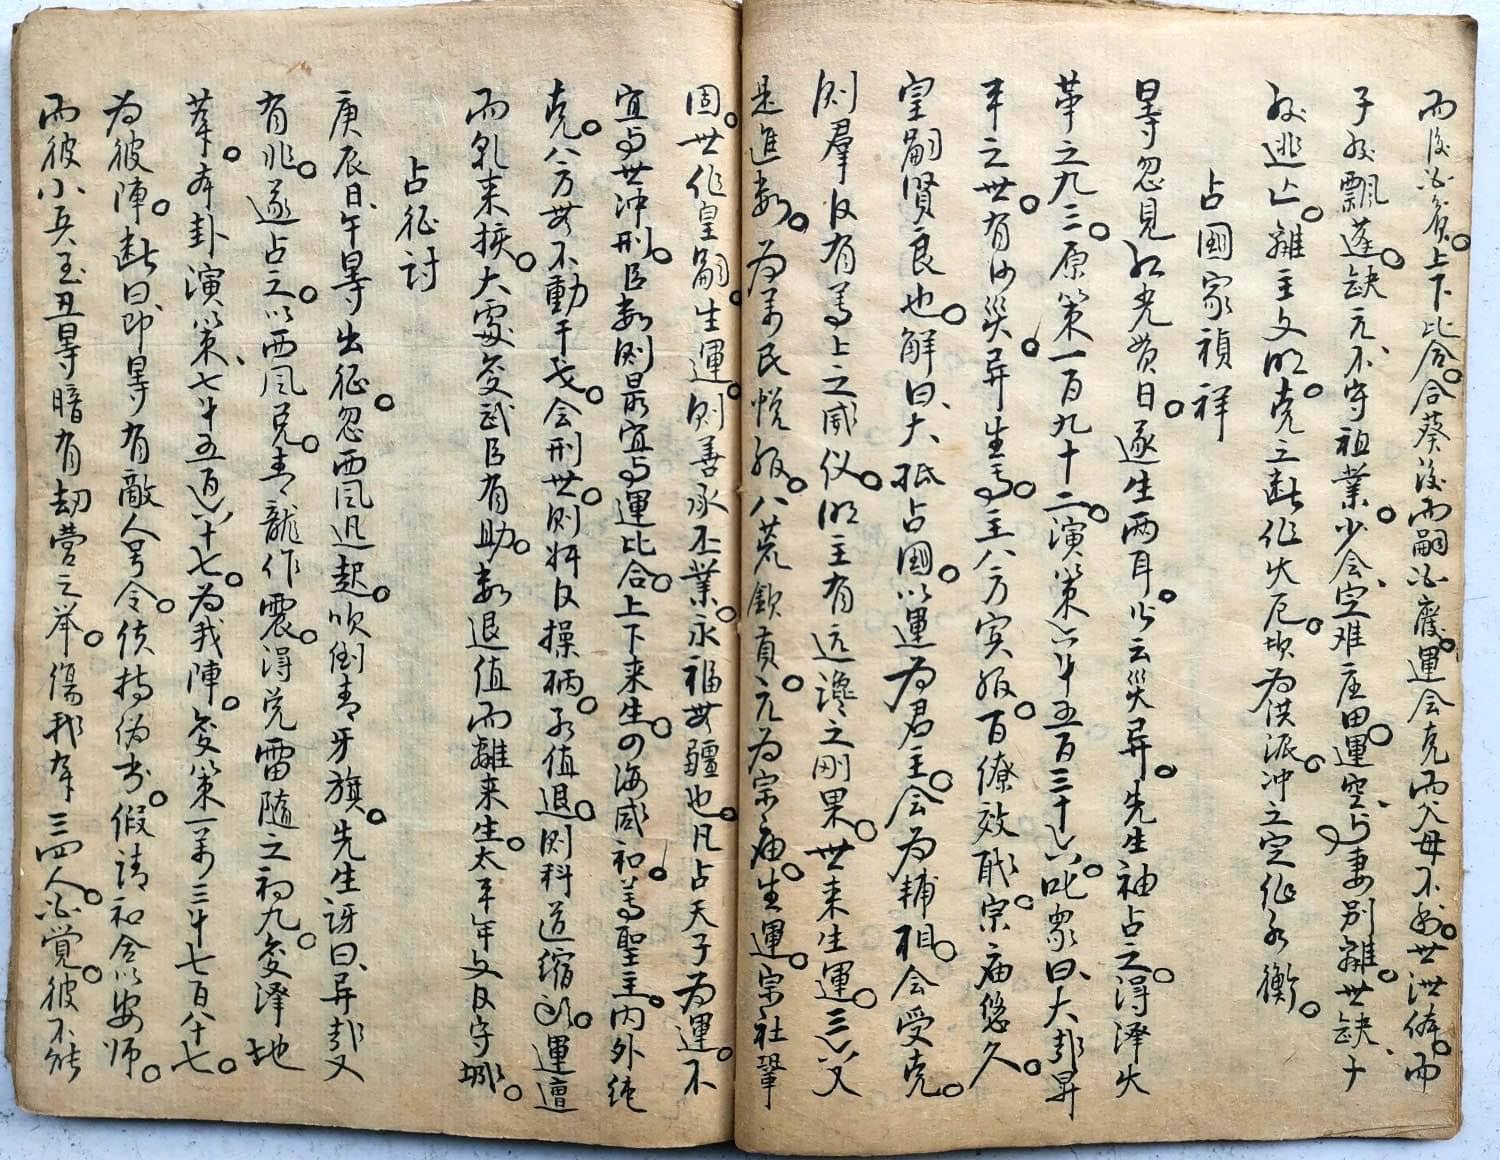 而後必貧。上下比合。合葵後而嗣必廢。運会克而父母不妨。世泄俸。而
子孫飄蓬。缺元、不守祖業。少会、空难庄田。運空、与妻别離。世缺、子
孫逃亡。離主文明。克之断作火厄。坎為洪派。冲之定作水衡。
占國家禎祥
晷忽見红光貫日。遂生两耳。少云災異。先生袖占之。得澤火
革之九三。原策一百九十二。演策六千五百三十六。叱衆曰、大都昇
平之世。有何災異。生為主、八方实服。百僚效職。宗庙悠久。
皇嗣賢良也。解曰、大抵占國。以運為君主。会為輔相。会受克。
则羣臣有為上之威仪。明主有远讒之刚果。世来生運。三六爻
是進数。為萬民悦服。八荒欽貢。元為宗庙。生運。宗社鞏
固。世作皇嗣。生運。则善承丕業。永福毋疆也。凡占天子為運。不
宜与世冲刑。臣数则最宜与運比合。上下来生。四海咸和。為聖主。内外純
克。八方毋不動干戈。会刑世。则奸臣操柄。元值退。则科道缩頭。運亶
而乱来接。大震变武臣有助。数退值而離来生。太平年文臣守城。
占征討
庚辰日、午晷出征。忽西風迅起。吹倒青牙旗。先生讶曰、异哉又
有兆。遂占之。以西風克。青龍作震。得兑雷随之初九。变澤地
萃。本卦演策、七千五百六十七。為我陣。变策一萬三千七百八十七。
為彼陣。断曰、即晷有敵人号令。使持伪书。假請和令以安师。
而彼小兵至丑晷暗有劫营之举。傷我军三四人。必覚。彼不能